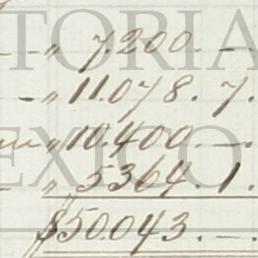 „ 7.200. —.
— „ 11.078. 7.
„ 10.400. —.
— „ 5364. 1.
$50.043. —.
TORIA
EXICO